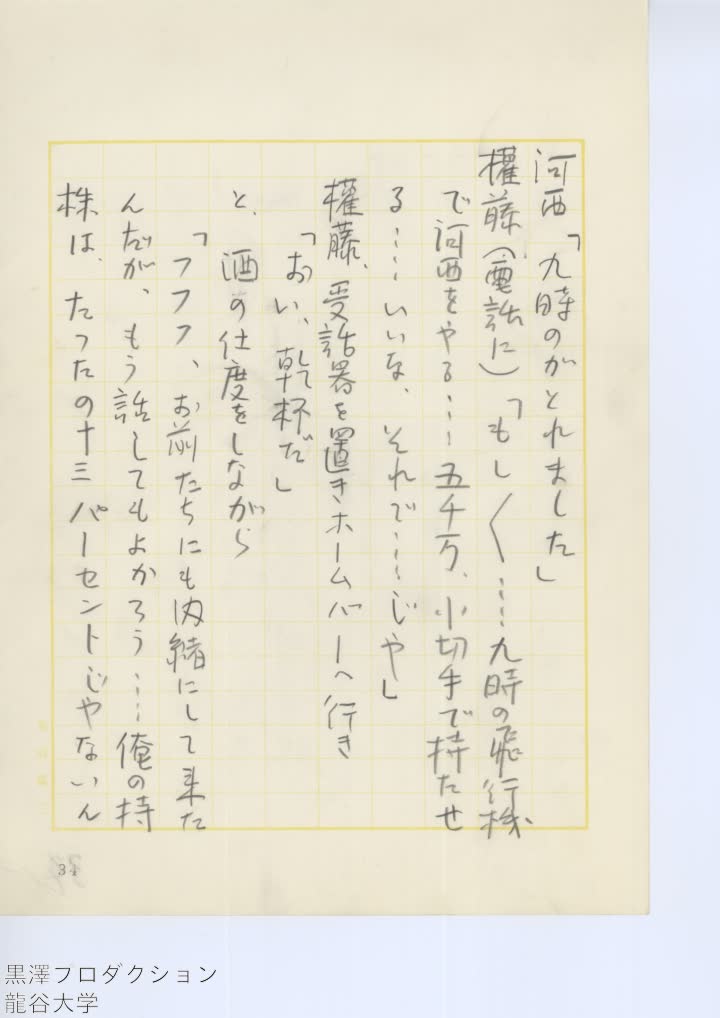 河西「九時のがとれました」
権藤(電話に)「もし〱……九時の飛行機
で河西をやる……五千万、小切手で持たせ
る……いいな、それで……じや」
権藤、受話器を置きホームバーへ行き
「おい、乾杯だ」
と、酒の仕度をしながら
「フフフ、お前たちにも内緒にして来た
んだが、もう話してもよかろう……俺の持
株は、たったの十三パーセントじやないん
34
黒澤プロダクション
龍谷大学